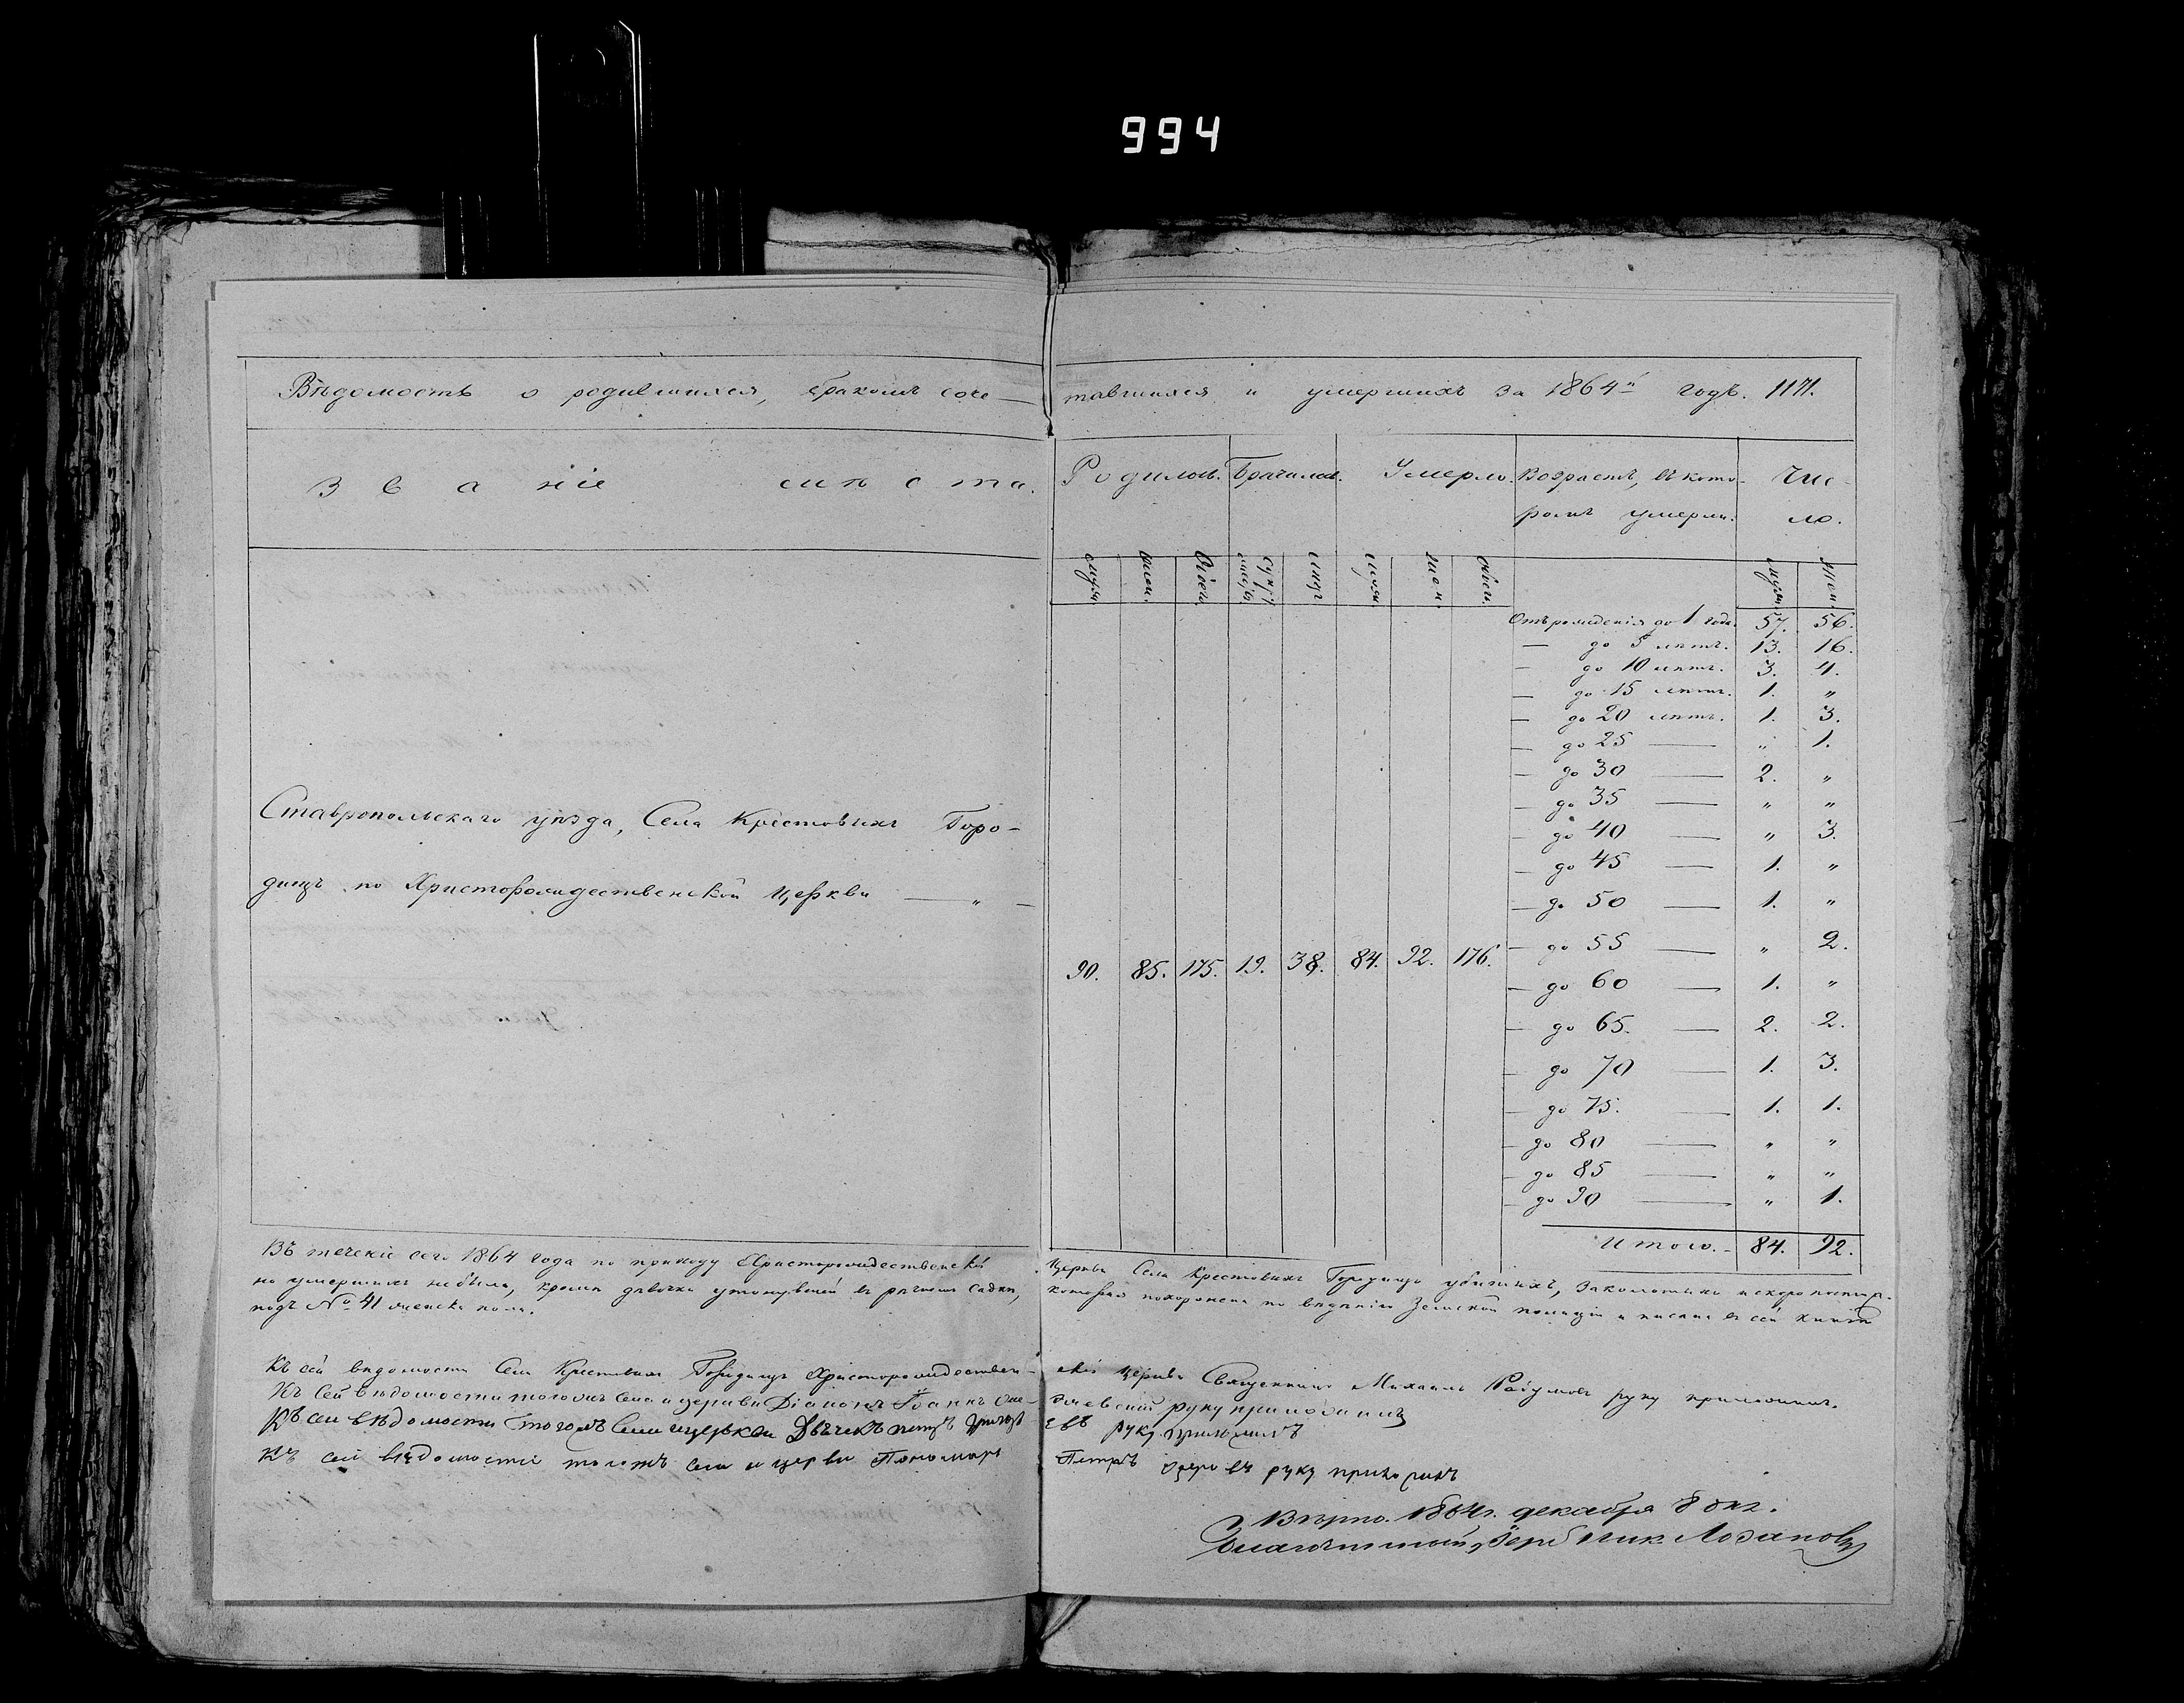 994
Вѣдомость о родившихся, бракомъ соче-
тавшихся и умершихъ за 1864й годъ. 1171.
Званіе мѣста.
Родилось. Брачились. Умерло. Возрастъ, въ кото-
ромъ умерли. Чис-
ло.
муж. жен. Всего. муж. жен. муж. жен.
Отъ рожденія до 1 года. 57. 56.
— до 5 лѣтъ. 13. 16.
— до 10 лѣтъ. 3. 4.
— до 15 лѣтъ. 1. "
— до 20 лѣтъ. 1. 3.
— до 25 — " 1.
— до 30 — 2. "
— до 35 — " "
— до 40 — " 3.
— до 45 — 1. "
— до 50 — 1. "
— до 55 — " 2.
— до 60 — 1. "
— до 65. — 2. 2.
— до 70 — 1. 3.
— до 75. — 1. 1.
— до 80 — " "
— до 85 — " "
— до 90 — " 1.
Итого. - 84. 92.
Ставропольскаго уѣзда, Села Крестовыхъ Горо-
дищъ по Христорождественской Церкви — " —
90. 85. 175. 19. 38. 84. 92. 176.
Въ теченіе сего 1864 года по приходу Христорождественской
Церкви Села Крестовыхъ Городищъ убитыхъ, заколотыхъ и скоропостиж-
но умершихъ небыло, кромѣ дѣвочки утонувшей въ
которая похоронена по вѣдѣнію Земской полиціи и писана въ сей книгѣ
подъ № 41 женска пола.
Къ сей вѣдомости Села Крестовыхъ Городищъ Христорождествен-
ской Церкви Священникъ Михаилъ Разумовъ руку приложилъ.
Къ сей вѣдомости тогожъ Села и церкви Діаконъ Іоаннъ
руку приложилъ
Къ сей вѣдомости тогожъ Села и церкви Дьячекъ Петръ
евъ руку приложилъ
Къ сей вѣдомости тогожъ села и церкви Пономарь
Петръ Озеровъ руку приложилъ
Вѣрно. 1864 г. декабря 8 дня.
Благочинный, Іерей Ник. Лозановъ